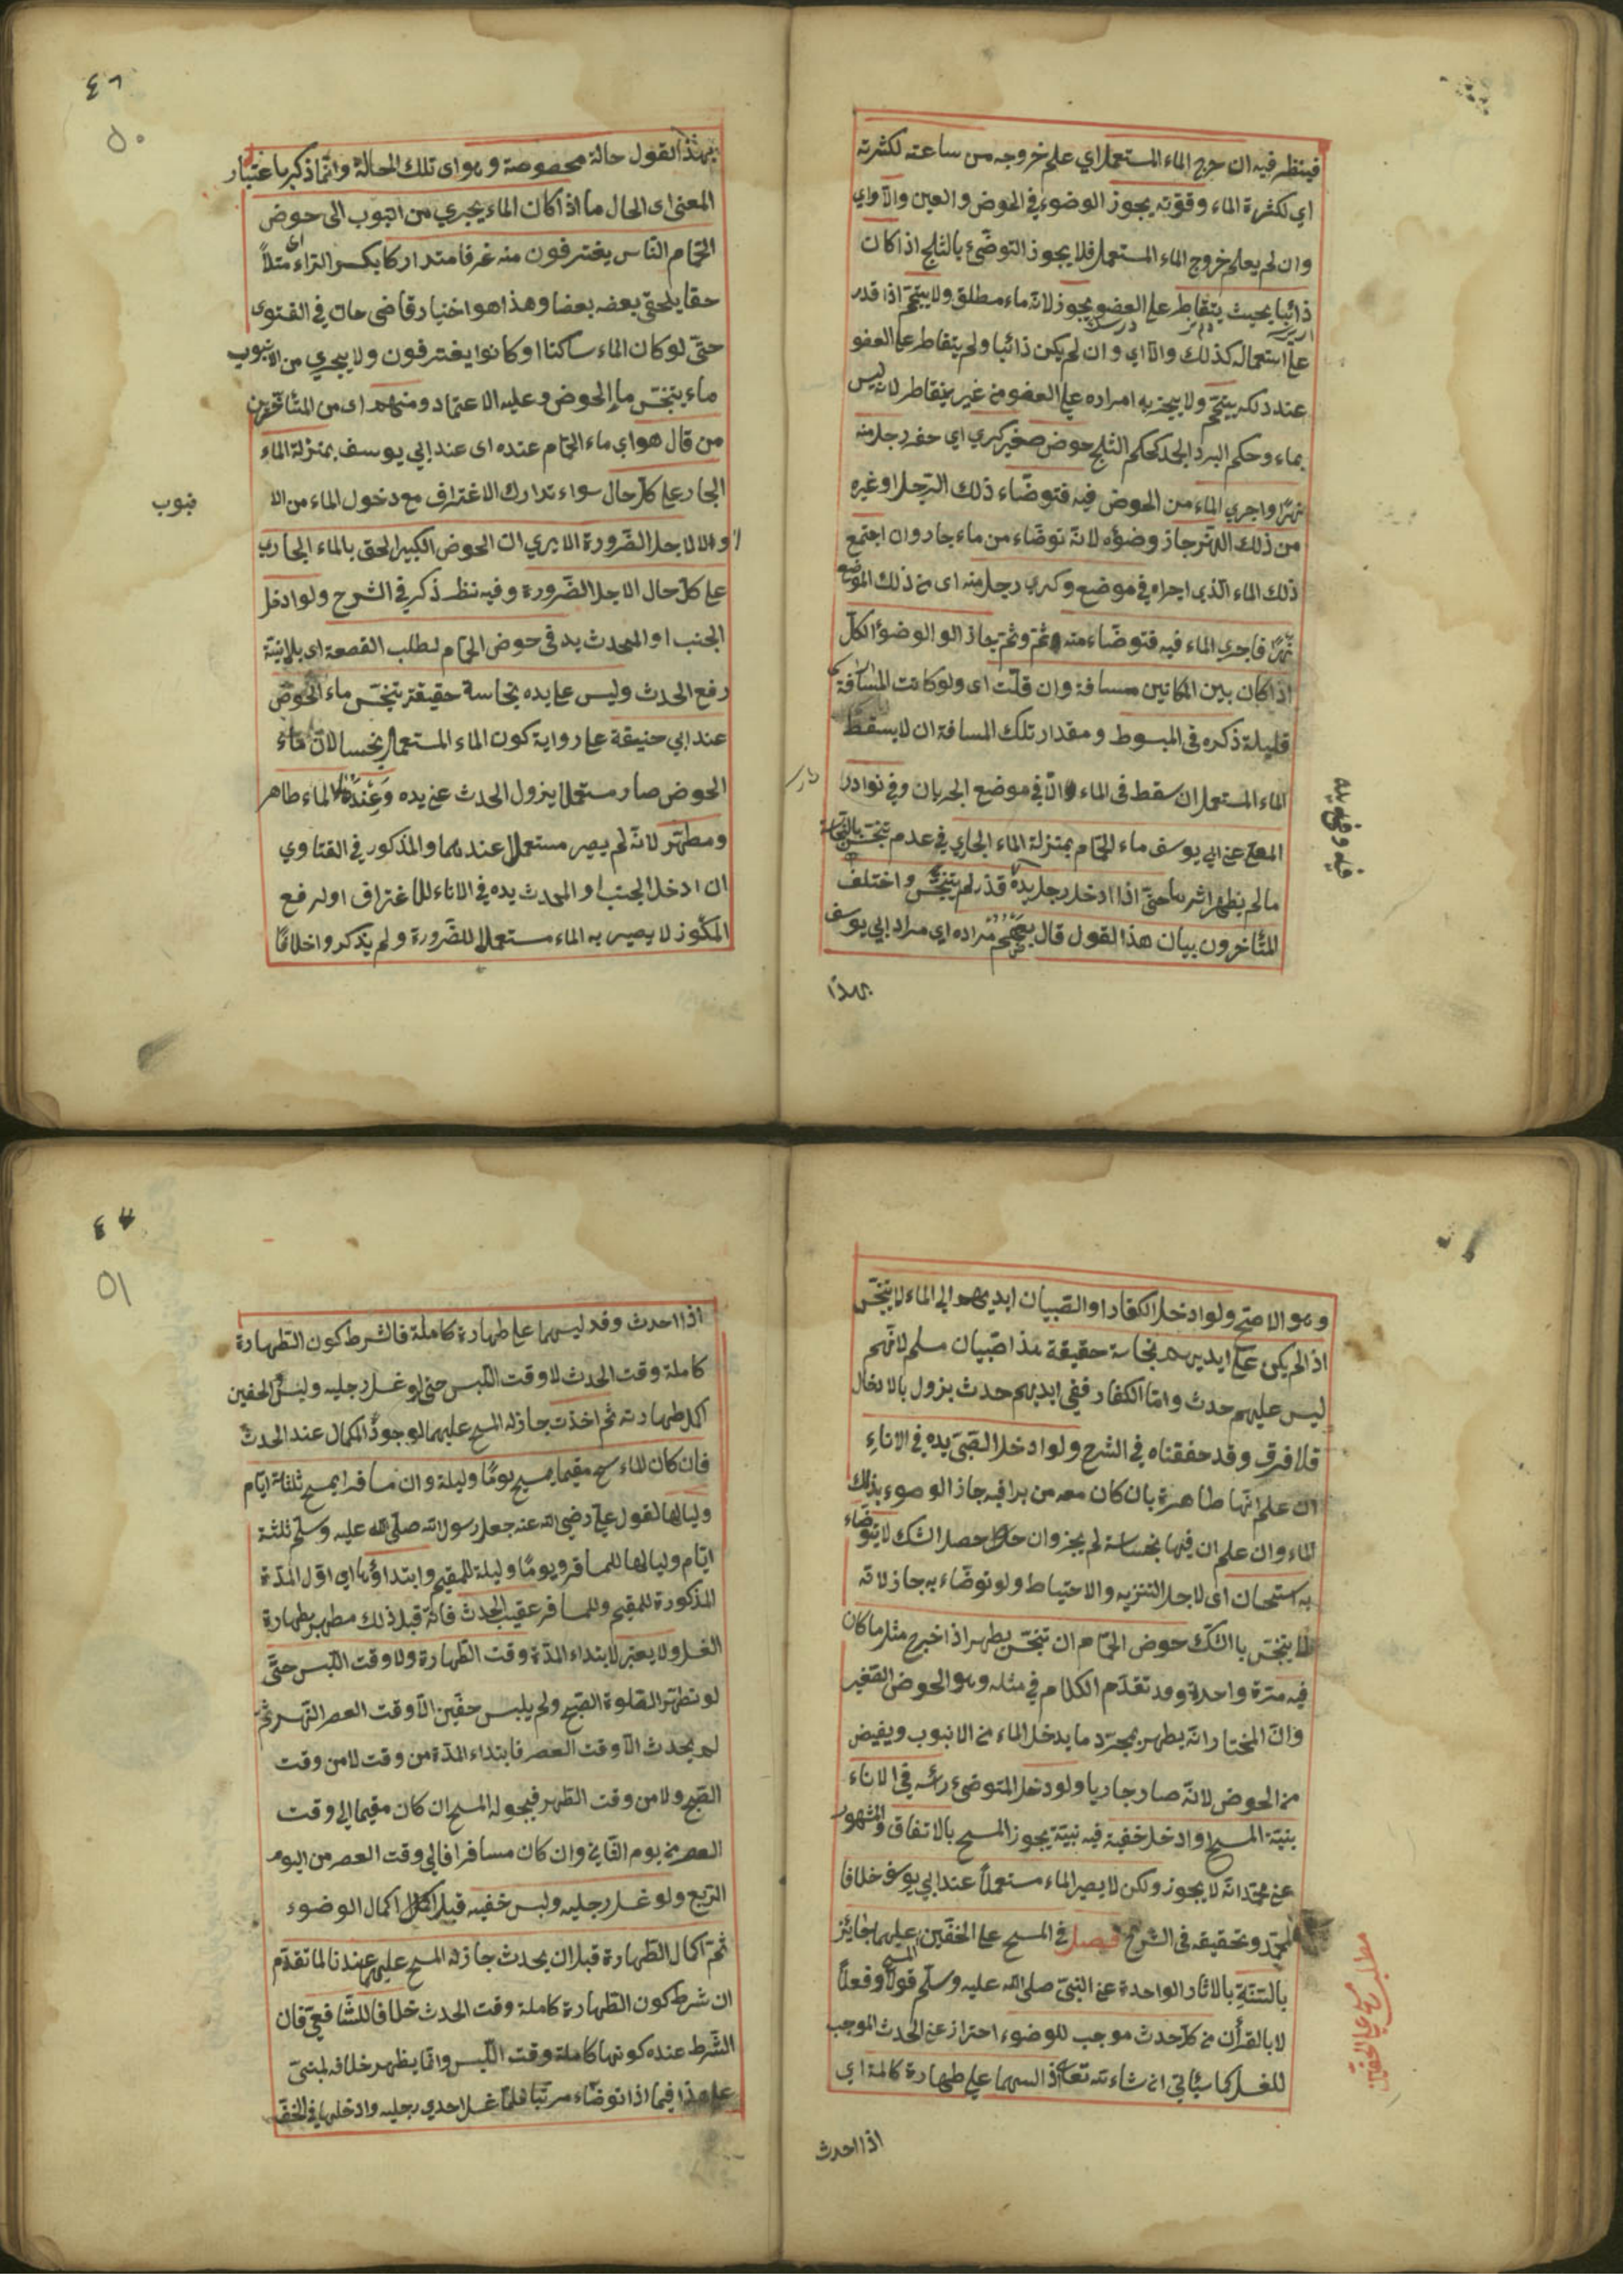 فينظر فيه ان خرج الماء المستعمل اي علم خروجه من ساعته لكثرته
اي لكثرة الماء وقوته يجوز الوضوء في الحوض والعين والا اي
وان لم يعلم خروج الماء المستعمل فلا يجوز التوضئ بالثلج اذا كان
ذائبا بحيث يتقاطر على العضو يجوز لانه ماء مطلق ولا يتيمم اذا قدر
على استعماله كذلك والا اي وان لم يكن ذائبا ولم يتقاطر على العضو
عند دلكه يتيمم ولا يجزيه امراره على العضو من غير تقاطر لانه ليس
بماء وحكم البرد الجمد كحكم الثلج حوض صغير كري اي حفر رجل منه
نهرا واجري الماء من الحوض فيه فتوضاء ذلك الرجل او غيره
من ذلك النهر جاز وضوؤه لانه توضاء من ماء جار وان اجتمع
ذلك الماء الذي اجراه في موضع وكري رجل منه اى من ذلك الموضع
نهرا فاجري الماء فيه فتوضاء منه وثم وثم جاز الوضوء الكل
اذا كان بين المكانين مسافة وان قلت اى ولو كانت المسافة
قليلة ذكره فى المبسوط ومقدار تلك المسافة ان لا يسقط
الماء المستعمل ان سقط فى الماء والا في موضع الجريان وفي نوادر
المعلى عن ابي يوسف ماء الحمام بمنزلة الماء الجاري في عدم تنجس بالنجاسة
مالم يظهر اثرها حتى اذا ادخل رجل يده قذر لم يتنجس واختلف
المتأخرون بيان هذا القول قال بعضهم مراده اي مراد ابي يوسف
بهذا
٤٩
٥٠
بهذا القول حالة مخصوصة وهو اى تلك الحالة وانما ذكر باعتبار
المعنى اى الحال ما اذا كان الماء يجري من انبوب الى حوض
الحمام الناس يغترفون منه غرفا متداركا بكسر الراء اى متلا
حقا يلحق بعضه بعضا وهذا هو اختيار قاضى خان في الفتوى
حتى لو كان الماء ساكنا او كانوا يغترفون ولا يجري من الانبوب
ماء يتنجس ماء الحوض وعليه الاعتماد ومنهم اى من المتأخرين
من قال هو اي ماء الحمام عنده اى عند ابي يوسف بمنزلة الماء
الجار على كل حال سواء تدارك الاغتراف مع دخول الماء من الا
نبوب
او لا لاجل الضرورة الا يرى ان الحوض الكبير الحق بالماء الجاري
على كل حال لاجل الضرورة وفيه نظر ذكر في الشرح ولو ادخل
الجنب او المحدث يده في حوض الحمام لطلب القصعة اى بلا نية
رفع الحدث وليس على يده نجاسة حقيقة يتنجس ماء الحوض
عند ابي حنيفة على رواية كون الماء المستعمل نجسا لان ماء
الحوض صار مستعملا بزول الحدث عن يده وعندهما الماء طاهر
ومطهر لانه لم يصر مستعملا عندهما والمذكور في الفتاوي
ان ادخل الجنب او المحدث يده في الاناء للاغتراف او لرفع
الكوز لا يصير به الماء مستعملا للضرورة ولم يذكروا خلافا
وهو الاصح ولو ادخل الكفار او الصبيان ايديهم الى الماء لا يتنجس
اذا لم يكن على ايديهم نجاسة حقيقة هذا صبيان مسلم لانهم
ليس عليهم حدث واما الكفار ففي ايديهم حدث بزول بالادخال
فلا فرق وقد حققناه في الشرح ولو ادخل الصبى يده في الاناء
ان علم انها طاهرة بان كان معه من يراقبه جاز الوضوء بذلك
الماء وان علم ان فيها نجاسة لم يجز وان حصل الشك لا يتوضاء
به استحسان اى لاجل التنزيه والاحتياط ولو توضاء به جاز لانه
لا يتنجس بالشك حوض الحمام ان تنجس يطهر اذا خرج مثل ما كان
فيه مرة واحدة وقد تقدم الكلام في مثله وهو الحوض الصغير
وان المختار انه يطهر بمجرد ما يدخل الماء من الانبوب ويفيض
من الحوض لانه صار جاريا ولو دخل المتوضئ رأسه في الاناء
بنية المسح او ادخل خفية فيه نية يجوز المسح بالاتفاق والمشهور
عن محمد انه لا يجوز ولكن لا يصير الماء مستعملا عند ابي يوسف خلافا
لمحمد وتحقيقه فى الشرح فصل في المسح على الخفين المسح عليهما جائز
مطلب مسح على الخفين
بالسنة بالاثار الواحدة عن النبي صلى الله عليه وسلم قولا وفعلا
لا بالقرأن من كل حدث موجب للوضوء احتراز عن الحدث الموجب
للغسل كما سيأتي ان شاء الله تعالى اذا لبسهما على طهارة كاملة اي
اذا احدث
٥١
اذا احدث وقد لبسهما على طهارة كاملة فالشرط كون الطهارة
كاملة وقت الحدث لا وقت اللبس حتى لو غسل رجليه ولبس الخفين
اكمل طهارته ثم احدث جاز له المسح عليهما لوجود الكمال عند الحدث
فان كان الماسح مقيما يمسح يوما وليلة وان مسافرا يمسح ثلثة ايام
ولياليها لقول على رضي الله عنه جعل رسول الله صلى الله عليه وسلم ثلثة
ايام ولياليها للمسافر ويوما وليلة للمقيم وابتداؤها اى اول المدة
المذكورة للمقيم وللمسافر عقيب الحدث فانه قبل ذلك مطهر بطهارة
الغسل ولا يعتبر لابتداء المدة وقت الطهارة ولا وقت اللبس حتى
لو تطهر الصلوة الصبح ولم يلبس خفين الا وقت العصر الظهر ثم
لم يحدث الا وقت العصر فابتداء المدة من وقت لا من وقت
الصبح ولا من وقت الظهر فيجو له المسح ان كان مقيما الى وقت
العصر من يوم الثاني وان كان مسافرا فالي وقت العصر من اليوم
الربع ولو غسل رجليه ولبس خفيه قبل اكمال الوضوء
ثم اكمال الطهارة قبل ان يحدث جاز له المسح عليهما عندنا لما تقدم
ان شرط كون الطهارة كاملة وقت الحدث خلافا للشافعي فان
الشرط عنده كونها كاملة وقت اللبس وانما يظهر خلافه لمبنى
على هذا فيما اذا توضاء مرتبا فلما غسل احدى رجليه وادخلها في الخف